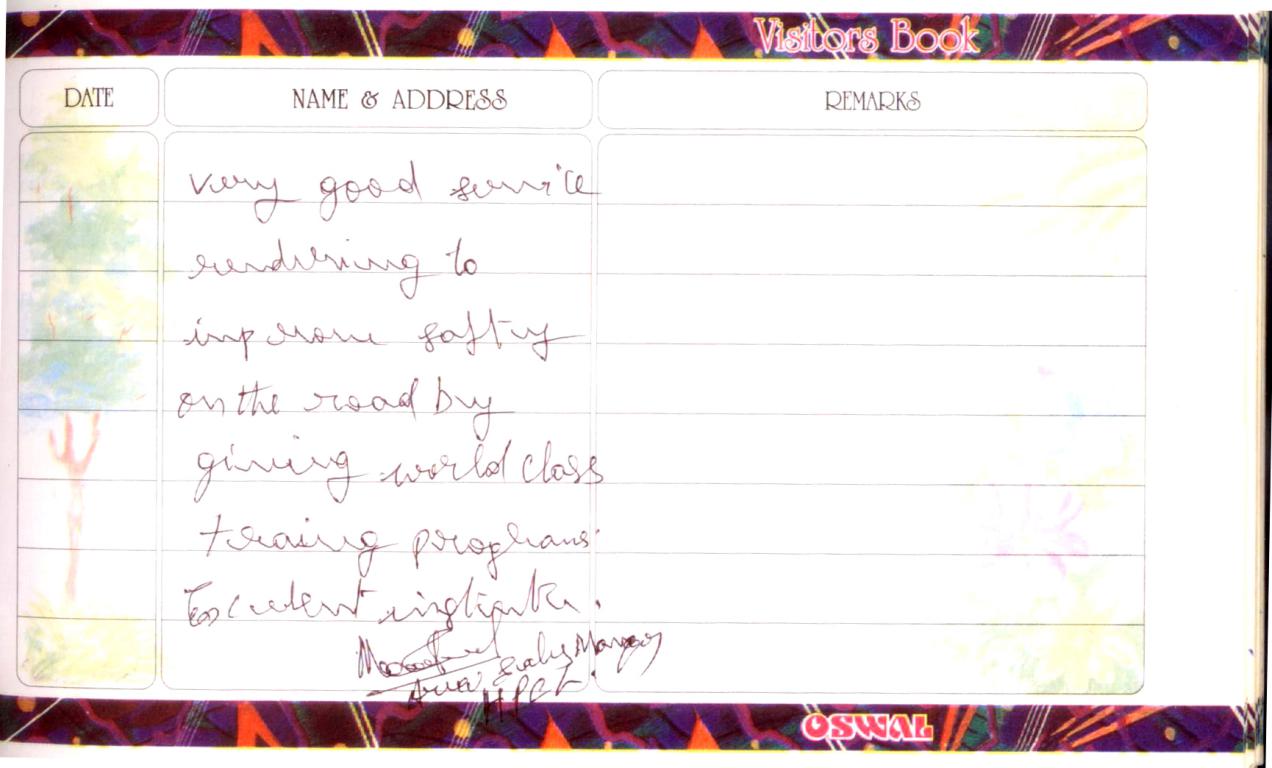 Visitors Book
DATE NAME & ADDRESS REMARKS
very good service
rendering to
improve safty
on the road by
giving world class
traing programs
Excelent
Area Sales Manager
HPCL
OSWAL